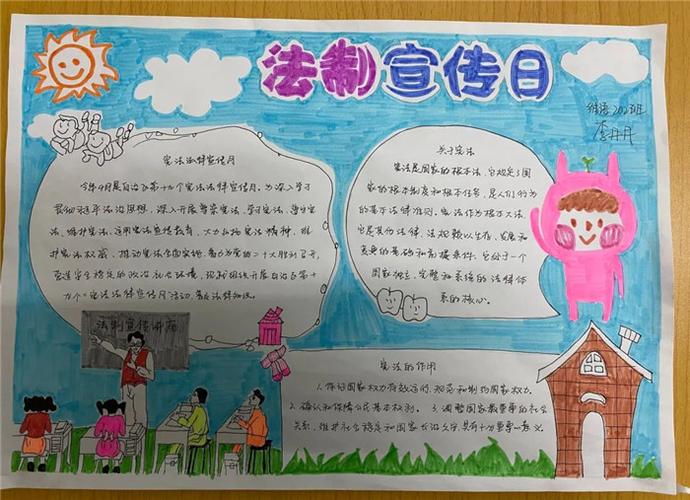 法制宣传日
维语2021班
李丹丹
宪法法律宣传月
今年9月是自治区第十个宪法法律宣传月，为深入学习
贯彻习近平法治思想，深入开展尊崇宪法、学习宪法、遵守宪
法、维护宪法、运用宪法宣传教育，大力弘扬宪法精神，维
护宪法权威，推动宪法全面实施，着力为党的二十大胜利召开
营造安全稳定的政治社会环境，现就组织开展自治区第十
个"宪法法律宣传月"活动，普及法律知识。
关于宪法
宪法是国家的根本法，它规定了国
家的根本制度和根本任务，是人们行为
的基本法律准则，宪法作为根本大法，
它是其他法律、法规赖以生存、发展和
完善的基础和前提条件，它处于一个
国家独立、完整和系统的法律体
系的核心。
法制宣传讲座
宪法的作用
1.保证国家权力有效运行，规范和制约国家权力。
2.确认和保障公民基本权利。 3.调整国家最重要的社会
关系，维护社会稳定和国家长治久安，具有十分重要的意义。